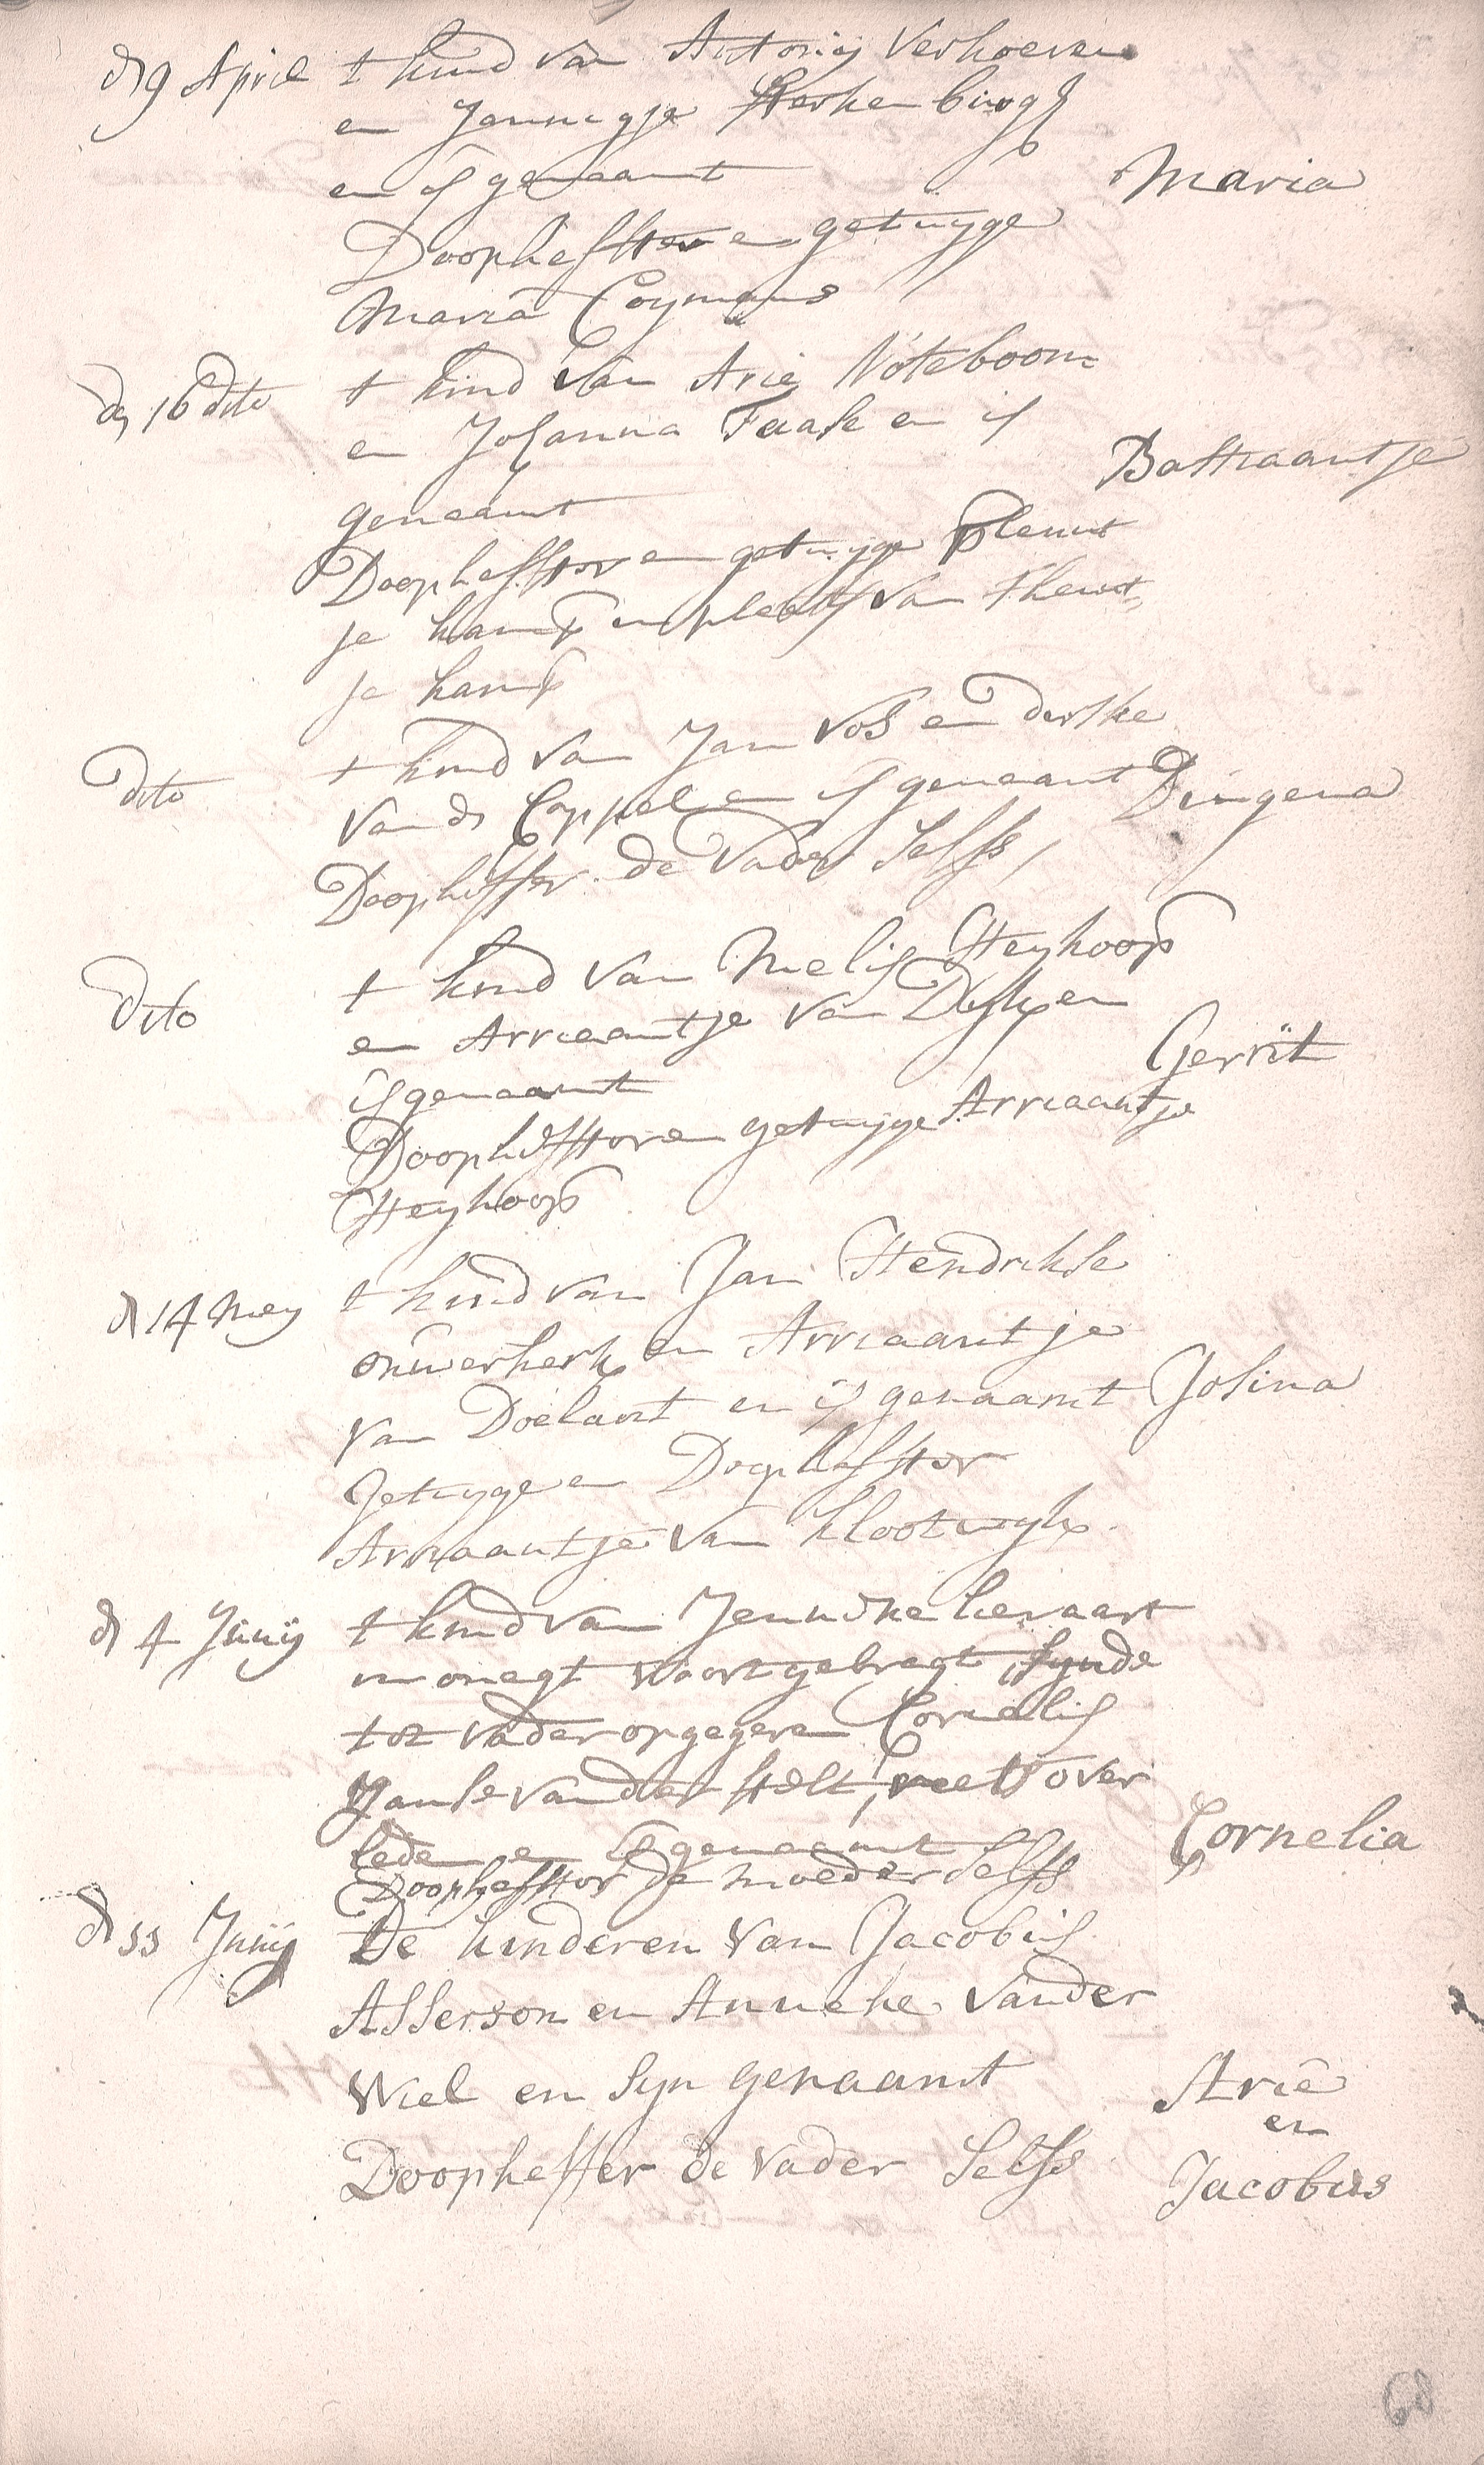 d 9 April t kind van Antonij Verhoeven
en Jannigje Sterkenburgh
en is genaamt Maria
Doopheffster en getuyge
Maria Coymans
d 16 dito t kind van Arie Noteboom
en Johanna Faase en is
genaamt Bastiaantje
Doopheffster en getuyge Pleunt
je hamp in plaats van Theunt
je hamp
dito t kind van Jan Vos en derske
Van d Cappel en is genaamt Dingena
Doopheffer de Vader Selfs
Dito t kind van Melis Heykoop
en Arriaantje van Dyk en
is genaamt Gerrit
Doopheffster en getuyge Arriaantje
Heykoop
d 14 Mey t kind van Jan Hendrikse
onwerkerk en Arriaantje
van Doelant en is genaamt Josina
Getuyge en Doopheffster
Arriaantje van Klootwyk
d 4 Junij t kind van Jenneke lievaart
in onegt voortgebragt, synde
tot vader opgegeven Cornelis
Janse vander helt, reets over
leden en is genaamt Cornelia
Doopheffster de moeder Selfs
d 11 Junij De kinderen van Jacobus
Asserson en Anneke vander
Wiel en Syn genaamt Arie
en
Doopheffer de vader Selfs Jacobus
68